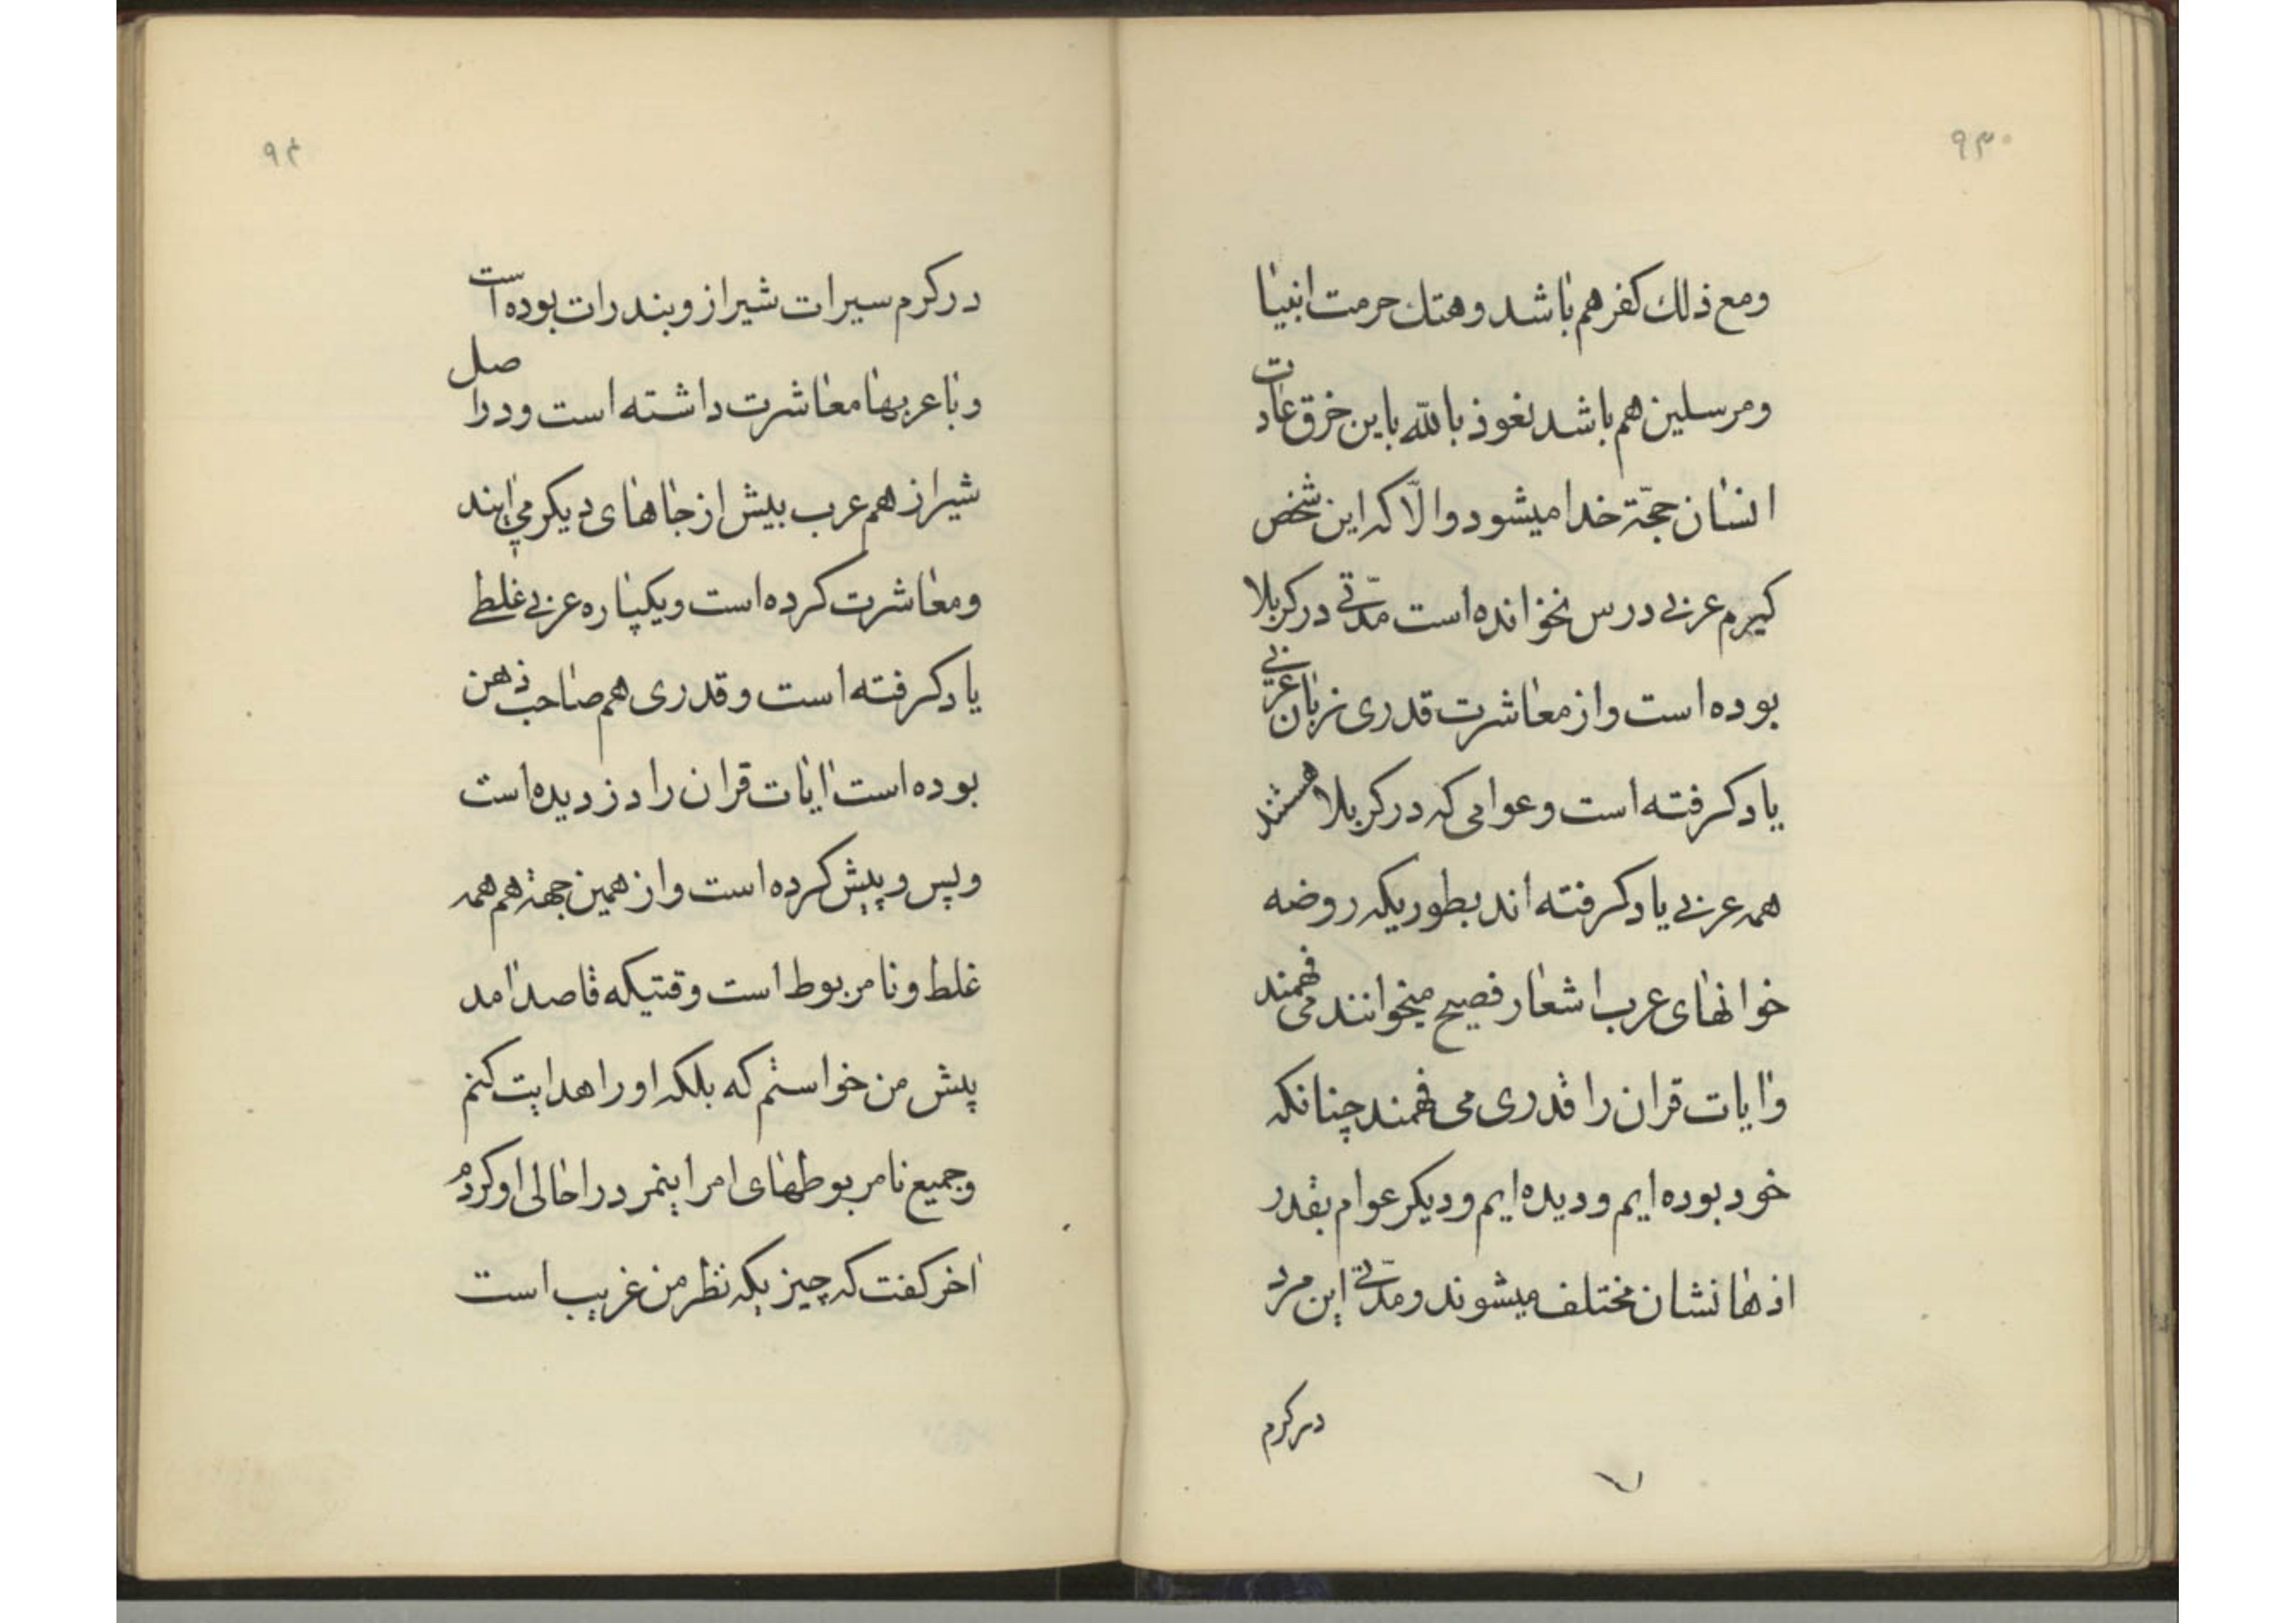 ۹۳
ومع ذلك كفر هم باشد وهتك حرمت انبيا
ومرسلين هم باشد نعوذ بالله باين خرق عادات
انسان حجّة خدا ميشود والّا كه اين شخص
كيرم عربی درس نخوانده است مدّتی در كربلا
بوده است واز معاشرت قدری زبان عربی
ياد كرفته است وعوامی كه در كربلا هستند
همه عربی ياد كرفته اند بطوريكه روضه
خوانهای عرب اشعار فصيح ميخوانند می فهمند
وآيات قران را قدری می فهمند چنانكه
خود بوده ايم وديده ايم وديكر عوام بقدر
اذهانشان مختلف ميشوند ومدّتی اين مرد
در كرم
۷
۹۴
در كرم سيرات شيراز وبندرات بوده است
وبا عربها معاشرت داشته است ودر اصل
شيراز هم عرب بيش از جاهای ديكر می آيند
ومعاشرت كرده است ويكپاره عربی غلطی
ياد كرفته است وقدری هم صاحب ذهن
بوده است آيات قران را دزديده است
وپس وپيش كرده است واز همين جهة هم همه
غلط ونامربوط است وقتيكه قاصد آمد
پيش من خواستم كه بلكه او را هدايت كنم
وجميع نامربوطهای امر اينمرد را حالی او كردم
آخر كفت كه چيزيكه نظر من غريب است